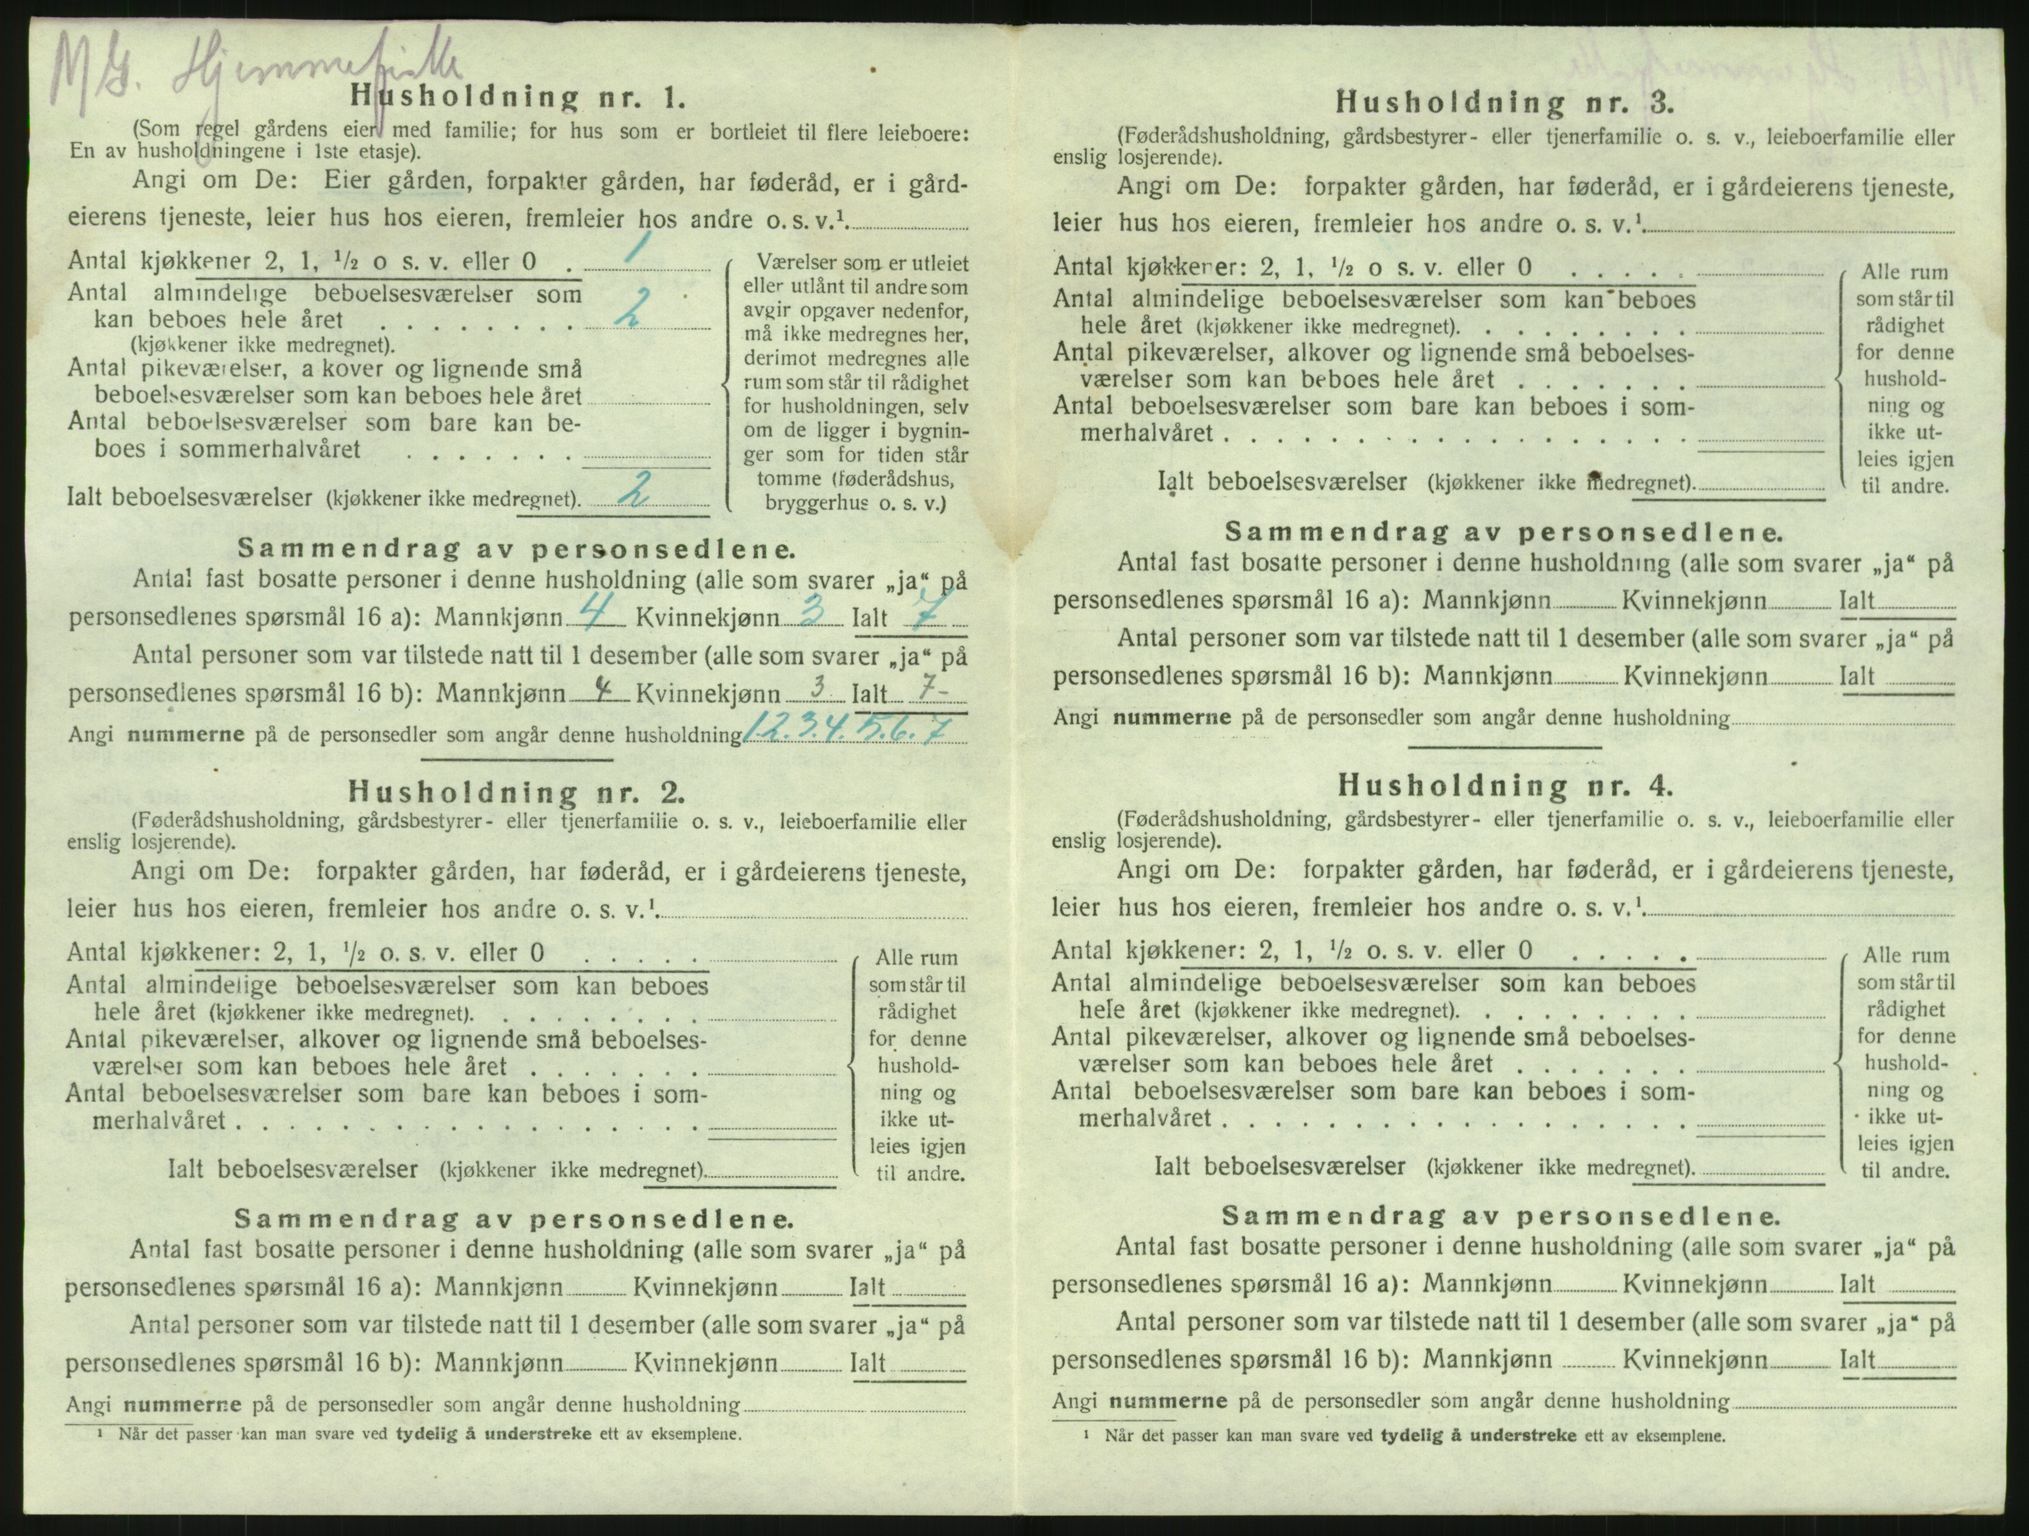 M G. Hjemmefiske
Husholdning nr. 1.
(Som regel gårdens eier med familie; for hus som er bortleiet til flere leieboere:
En av husholdningene i 1ste etasje).
Angi om De: Eier gården, forpakter gården, har føderåd, er i gård-
eierens tjeneste, leier hus hos eieren, fremleier hos andre o. s. v.¹
Antal kjøkkener 2, 1, ½ o s. v. eller 0 . 1
Antal almindelige beboelsesværelser som
kan beboes hele året . . . . . . . . 2
(kjøkkener ikke medregnet).
Antal pikeværelser, a kover og lignende små
beboelsesværelser som kan beboes hele året
Antal beboelsesværelser som bare kan be-
boes i sommerhalvåret . . . . . . .
Ialt beboelsesværelser (kjøkkener ikke medregnet). 2
Værelser som er utleiet
eller utlånt til andre som
avgir opgaver nedenfor,
må ikke medregnes her,
derimot medregnes alle
rum som står til rådighet
for husholdningen, selv
om de ligger i bygnin-
ger som for tiden står
tomme (føderådshus,
bryggerhus o. s. v.)
Sammendrag av personsedlene.
Antal fast bosatte personer i denne husholdning (alle som svarer „ja“ på
personsedlenes spørsmål 16 a): Mannkjønn 4 Kvinnekjønn 3 Ialt 7
Antal personer som var tilstede natt til 1 desember (alle som svarer „ja“ på
personsedlenes spørsmål 16 b): Mannkjønn 4 Kvinnekjønn 3 Ialt 7-
Angi nummerne på de personsedler som angår denne husholdning 1.2.3.4.5.6.7
Husholdning nr. 2.
(Føderådshusholdning, gårdsbestyrer- eller tjenerfamilie o. s. v., leieboerfamilie eller
enslig losjerende).
Angi om De: forpakter gården, har føderåd, er i gårdeierens tjeneste,
leier hus hos eieren, fremleier hos andre o. s. v.¹
Antal kjøkkener: 2, 1, ½ o. s. v. eller 0 . . . . .
Antal almindelige beboelsesværelser som kan beboes
hele året (kjøkkener ikke medregnet). . . . . . . . .
Antal pikeværelser, alkover og lignende små beboelses-
værelser som kan beboes hele året . . . . . . .
Antal beboelsesværelser som bare kan beboes i som-
merhalvåret . . . . . . . . . . . . . . . . . .
Ialt beboelsesværelser (kjøkkener ikke medregnet).
Alle rum
som står til
rådighet
for denne
hushold-
ning og
ikke ut-
leies igjen
til andre.
Sammendrag av personsedlene.
Antal fast bosatte personer i denne husholdning (alle som svarer „ja“ på
personsedlenes spørsmål 16 a): Mannkjønn Kvinnekjønn Ialt
Antal personer som var tilstede natt til 1 desember (alle som svarer „ja“ på
personsedlenes spørsmål 16 b): Mannkjønn Kvinnekjønn Ialt
Angi nummerne på de personsedler som angår denne husholdning
¹ Når det passer kan man svare ved tydelig å understreke ett av eksemplene.
Husholdning nr. 3.
(Føderådshusholdning, gårdsbestyrer- eller tjenerfamilie o. s. v., leieboerfamilie eller
enslig losjerende).
Angi om De: forpakter gården, har føderåd, er i gårdeierens tjeneste,
leier hus hos eieren, fremleier hos andre o. s. v.¹
Antal kjøkkener: 2, 1, ½ o s. v. eller 0 . . . . .
Antal almindelige beboelsesværelser som kan beboes
hele året (kjøkkener ikke medregnet). . . . . . . . .
Antal pikeværelser, alkover og lignende små beboelses-
værelser som kan beboes hele året . . . . . . .
Antal beboelsesværelser som bare kan beboes i som-
merhalvåret . . . . . . . . . . . . . . . . . .
Ialt beboelsesværelser (kjøkkener ikke medregnet).
Alle rum
som står til
rådighet
for denne
hushold-
ning og
ikke ut-
leies igjen
til andre.
Sammendrag av personsedlene.
Antal fast bosatte personer i denne husholdning (alle som svarer „ja“ på
personsedlenes spørsmål 16 a): Mannkjønn Kvinnekjønn Ialt
Antal personer som var tilstede natt til 1 desember (alle som svarer „ja“ på
personsedlenes spørsmål 16 b): Mannkjønn Kvinnekjønn Ialt
Angi nummerne på de personsedler som angår denne husholdning
Husholdning nr. 4.
(Føderådshusholdning, gårdsbestyrer- eller tjenerfamilie o. s. v., leieboerfamilie eller
enslig losjerende).
Angi om De: forpakter gården, har føderåd, er i gårdeierens tjeneste,
leier hus hos eieren, fremleier hos andre o. s. v.¹
Antal kjøkkener: 2, 1, ½ o. s. v. eller 0 . . . . .
Antal almindelige beboelsesværelser som kan beboes
hele året (kjøkkener ikke medregnet). . . . . . . . .
Antal pikeværelser, alkover og lignende små beboelses-
værelser som kan beboes hele året . . . . . . .
Antal beboelsesværelser som bare kan beboes i som-
merhalvåret . . . . . . . . . . . . . . . . . .
Ialt beboelsesværelser (kjøkkener ikke medregnet).
Alle rum
som står til
rådighet
for denne
hushold-
ning og
ikke ut-
leies igjen
til andre.
Sammendrag av personsedlene.
Antal fast bosatte personer i denne husholdning (alle som svarer „ja“ på
personsedlenes spørsmål 16 a): Mannkjønn Kvinnekjønn Ialt
Antal personer som var tilstede natt til 1 desember (alle som svarer „ja“ på
personsedlenes spørsmål 16 b): Mannkjønn Kvinnekjønn Ialt
Angi nummerne på de personsedler som angår denne husholdning
¹ Når det passer kan man svare ved tydelig å understreke ett av eksemplene.